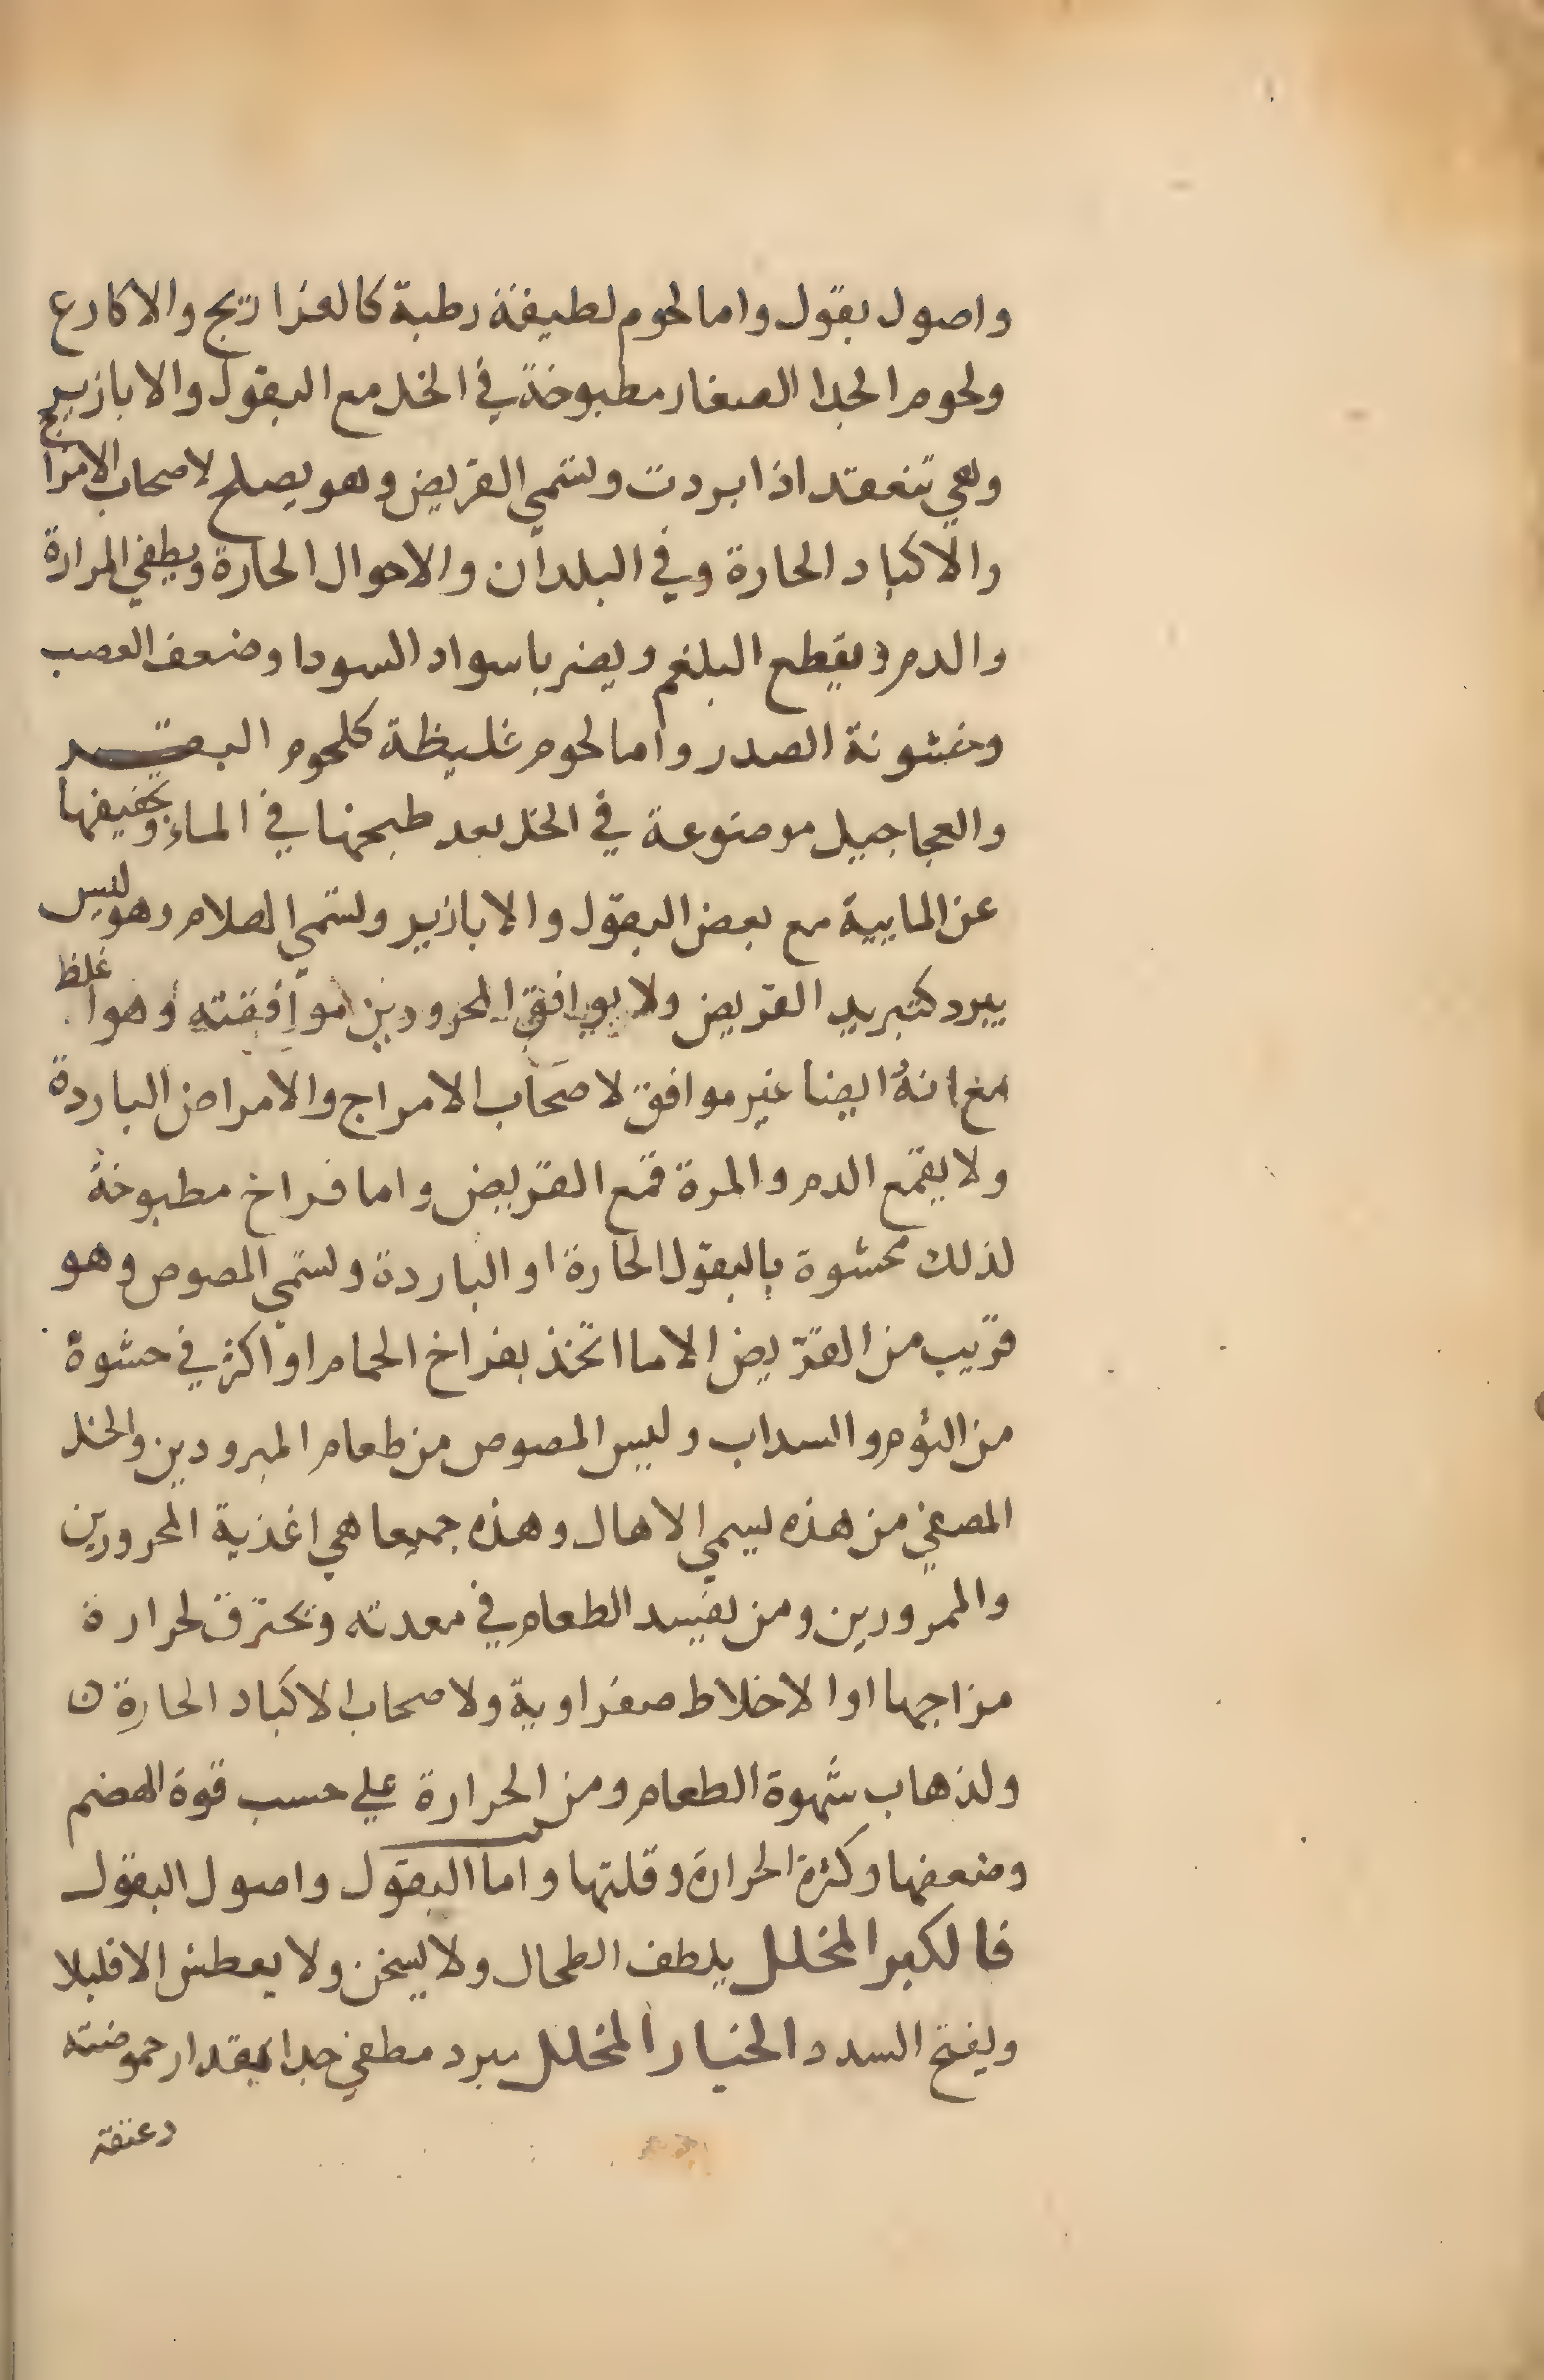 واصول بقول واما لحوم لطيفة رطبة كالفراريج والاكارع
ولحوم الجدا الصغار مطبوخة في الخل مع البقول والابازير
وهي تنعقد اذا بردت وتسمي القريض وهو يصلح لاصحاب الامزاج
والاكباد الحارة وفي البلدان والاحوال الحارة ويطفي المرارة
والدم ويقطع البلغم ويضر باسواد السودا وضعف العصب
وخشونة الصدر واما لحوم غليظة كلحوم البقر
والعجاجيل موضوعة في الخل بعد طبخها في الماء وتجفيفها
عن المايية مع بعض البقول والابازير وتسمي الهلام وهو ليس
يبرد كتبريد القريض ولا يوافق المحرورين موافقته وهو اغلظ
مع انه ايضا غير موافق لاصحاب الامزاج والامراض الباردة
ولا يقمع الدم والمرة قمع القريض واما فراخ مطبوخة
لذلك محشوة بالبقول الحارة او الباردة وتسمي المصوص وهو
قريب من القريض الا ما اتخذ بفراخ الحمام او اكثر في حشوة
من الثوم والسداب وليس المصوص من طعام المبرودين والخل
المصفي من هذه يسمي الاهال وهذه جميعا هي اغذية المحرورين
والممرورين ومن يفسد الطعام في معدته وتحترق لحرارة
مزاجها او الاخلاط صفراوية ولاصحاب الاكباد الحارة ن
ولذهاب شهوة الطعام ومن الحرارة علي حسب قوة الهضم
وضعفها وكثرة الحرارة وقلتها واما البقول واصول البقول
فالكبر المخلل يلطف الطحال ولا يسخن ولا يعطش الا قليلا
ويفتح السدد الخيار المخلل مبرد مطفي جدا بمقدار حموضته
وعتقه